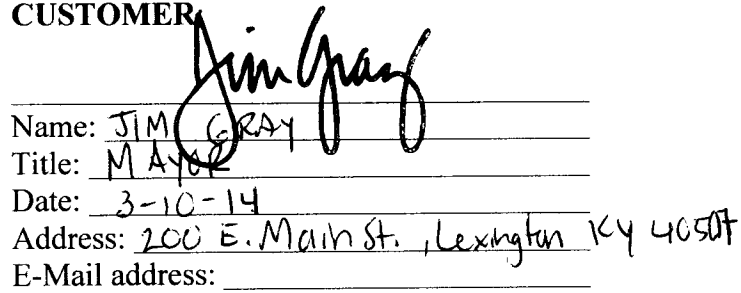 CUSTOMER
Jim Gray
Name: JIM GRAY
Title: MAYOR
Date: 3-10-14
Address: 200 E. Main St., Lexington KY 40507
E-Mail address: